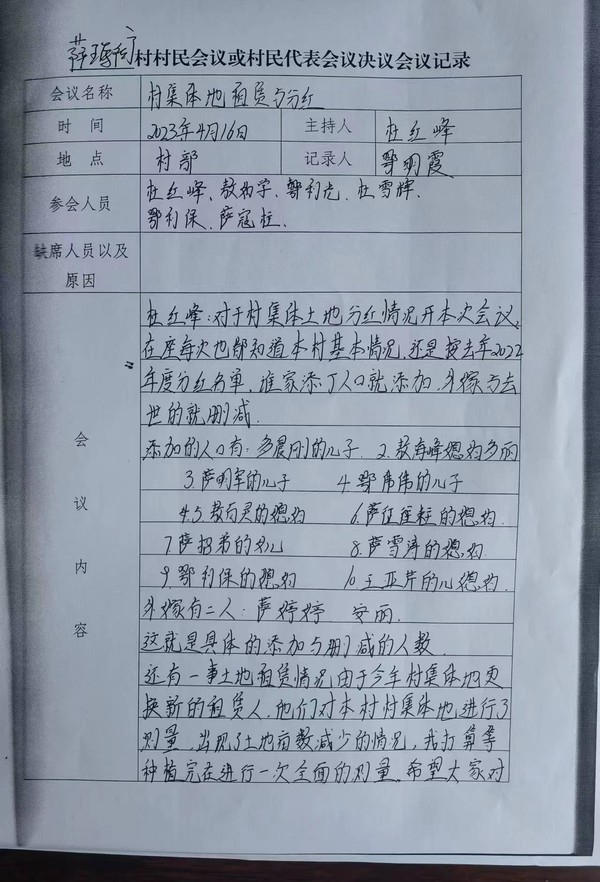 村村民会议或村民代表会议决议会议记录
会议名称 村集体地租赁与分红
时 间 2023年4月16日 主持人 杜红峰
地 点 村部 记录人 鄂明霞
参会人员 杜红峰、敖 学、鄂利 、杜雪辉、
鄂利保、萨冠柱.
缺席人员以及
原因
会议内容
杜红峰:对于村集体土地分红情况开本次会议,
在座每次也都知道本村基本情况,还是按去年2022
年度分红名单,谁家添丁人口就添加,外嫁与去
世的就删减.
添加的人口有:1.多晨刚的儿子 2.敖海峰媳妇多丽
3.萨明军的儿子 4.鄂伟伟的儿子
5. 的媳妇 6.萨 柱的媳妇.
7.萨招弟的 儿 8.萨雪涛的媳妇
9.鄂利保的媳妇 10.王亚芹的儿媳妇.
外嫁有二人:萨婷婷 安丽.
这就是具体的添加与删减的人数.
还有一事土地租赁情况由于今年村集体地更
换新的租赁人,他们对本村村集体地进行了
测量,出现了土地亩数减少的情况,我打算等
种植完在进行一次全面的测量,希望大家对